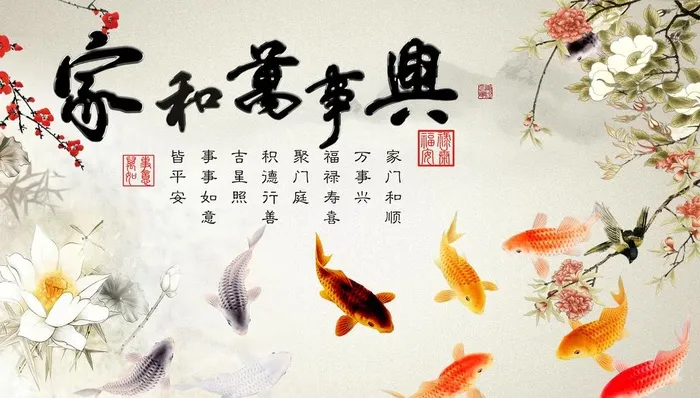 家和萬事興
家门和顺
万事兴
福禄寿喜
聚门庭
积德行善
吉星照
事事如意
皆平安
萬事如意